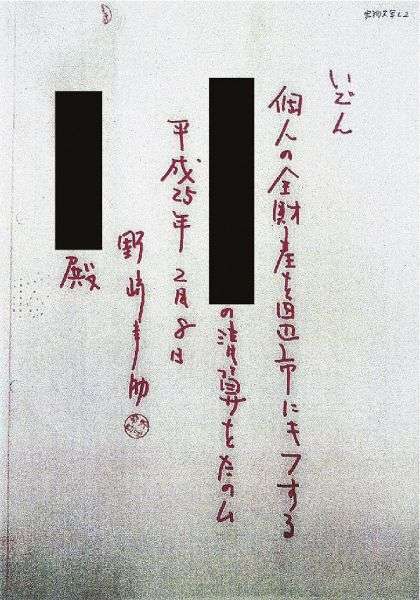 いごん
個人の全財産を田辺市にキフする
の清算をたのム
平成25年2月8日
野崎幸助
殿